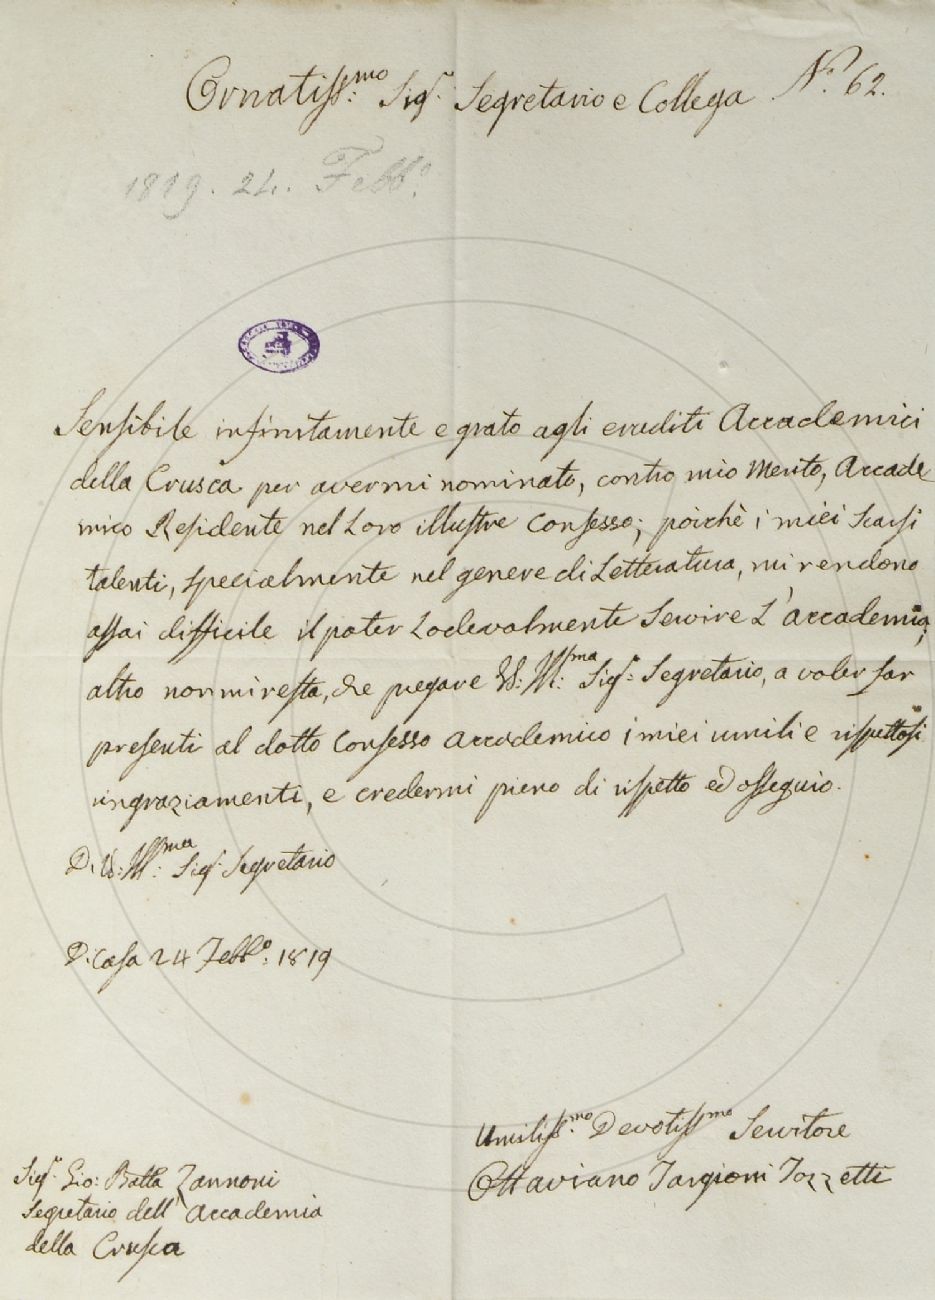 Ornatiss:mo Sigr Segretario e Collega No. 62.
1819. 24. Febbo.
Sensibile infinitamente e grato agli eruditi Accademici
della Crusca per avermi nominato, contro mio Merito, Accade
mico Residente nel Loro illustre Consesso; poichè i miei scarsi
talenti, specialmente nel genere di Letteratura, mi rendono
assai difficile il poter Lodevolmente Servire L'accademia;
altro non mi resta, che pregare V: Ill:ma Sigr Segretario, a voler far
presenti al dotto Consesso Accademico i miei umili e rispettosi
ringraziamenti, e credermi pieno di rispetto ed ossequio.
D. V: Ill:ma Sigr Segretario
D. Casa 24 Febbo: 1819
Umiliss:mo Devotissmo Servitore
Ottaviano Targioni Tozzetti
Sigr Gio: Batta Zannoni
Segretario dell'Accademia
della Crusca